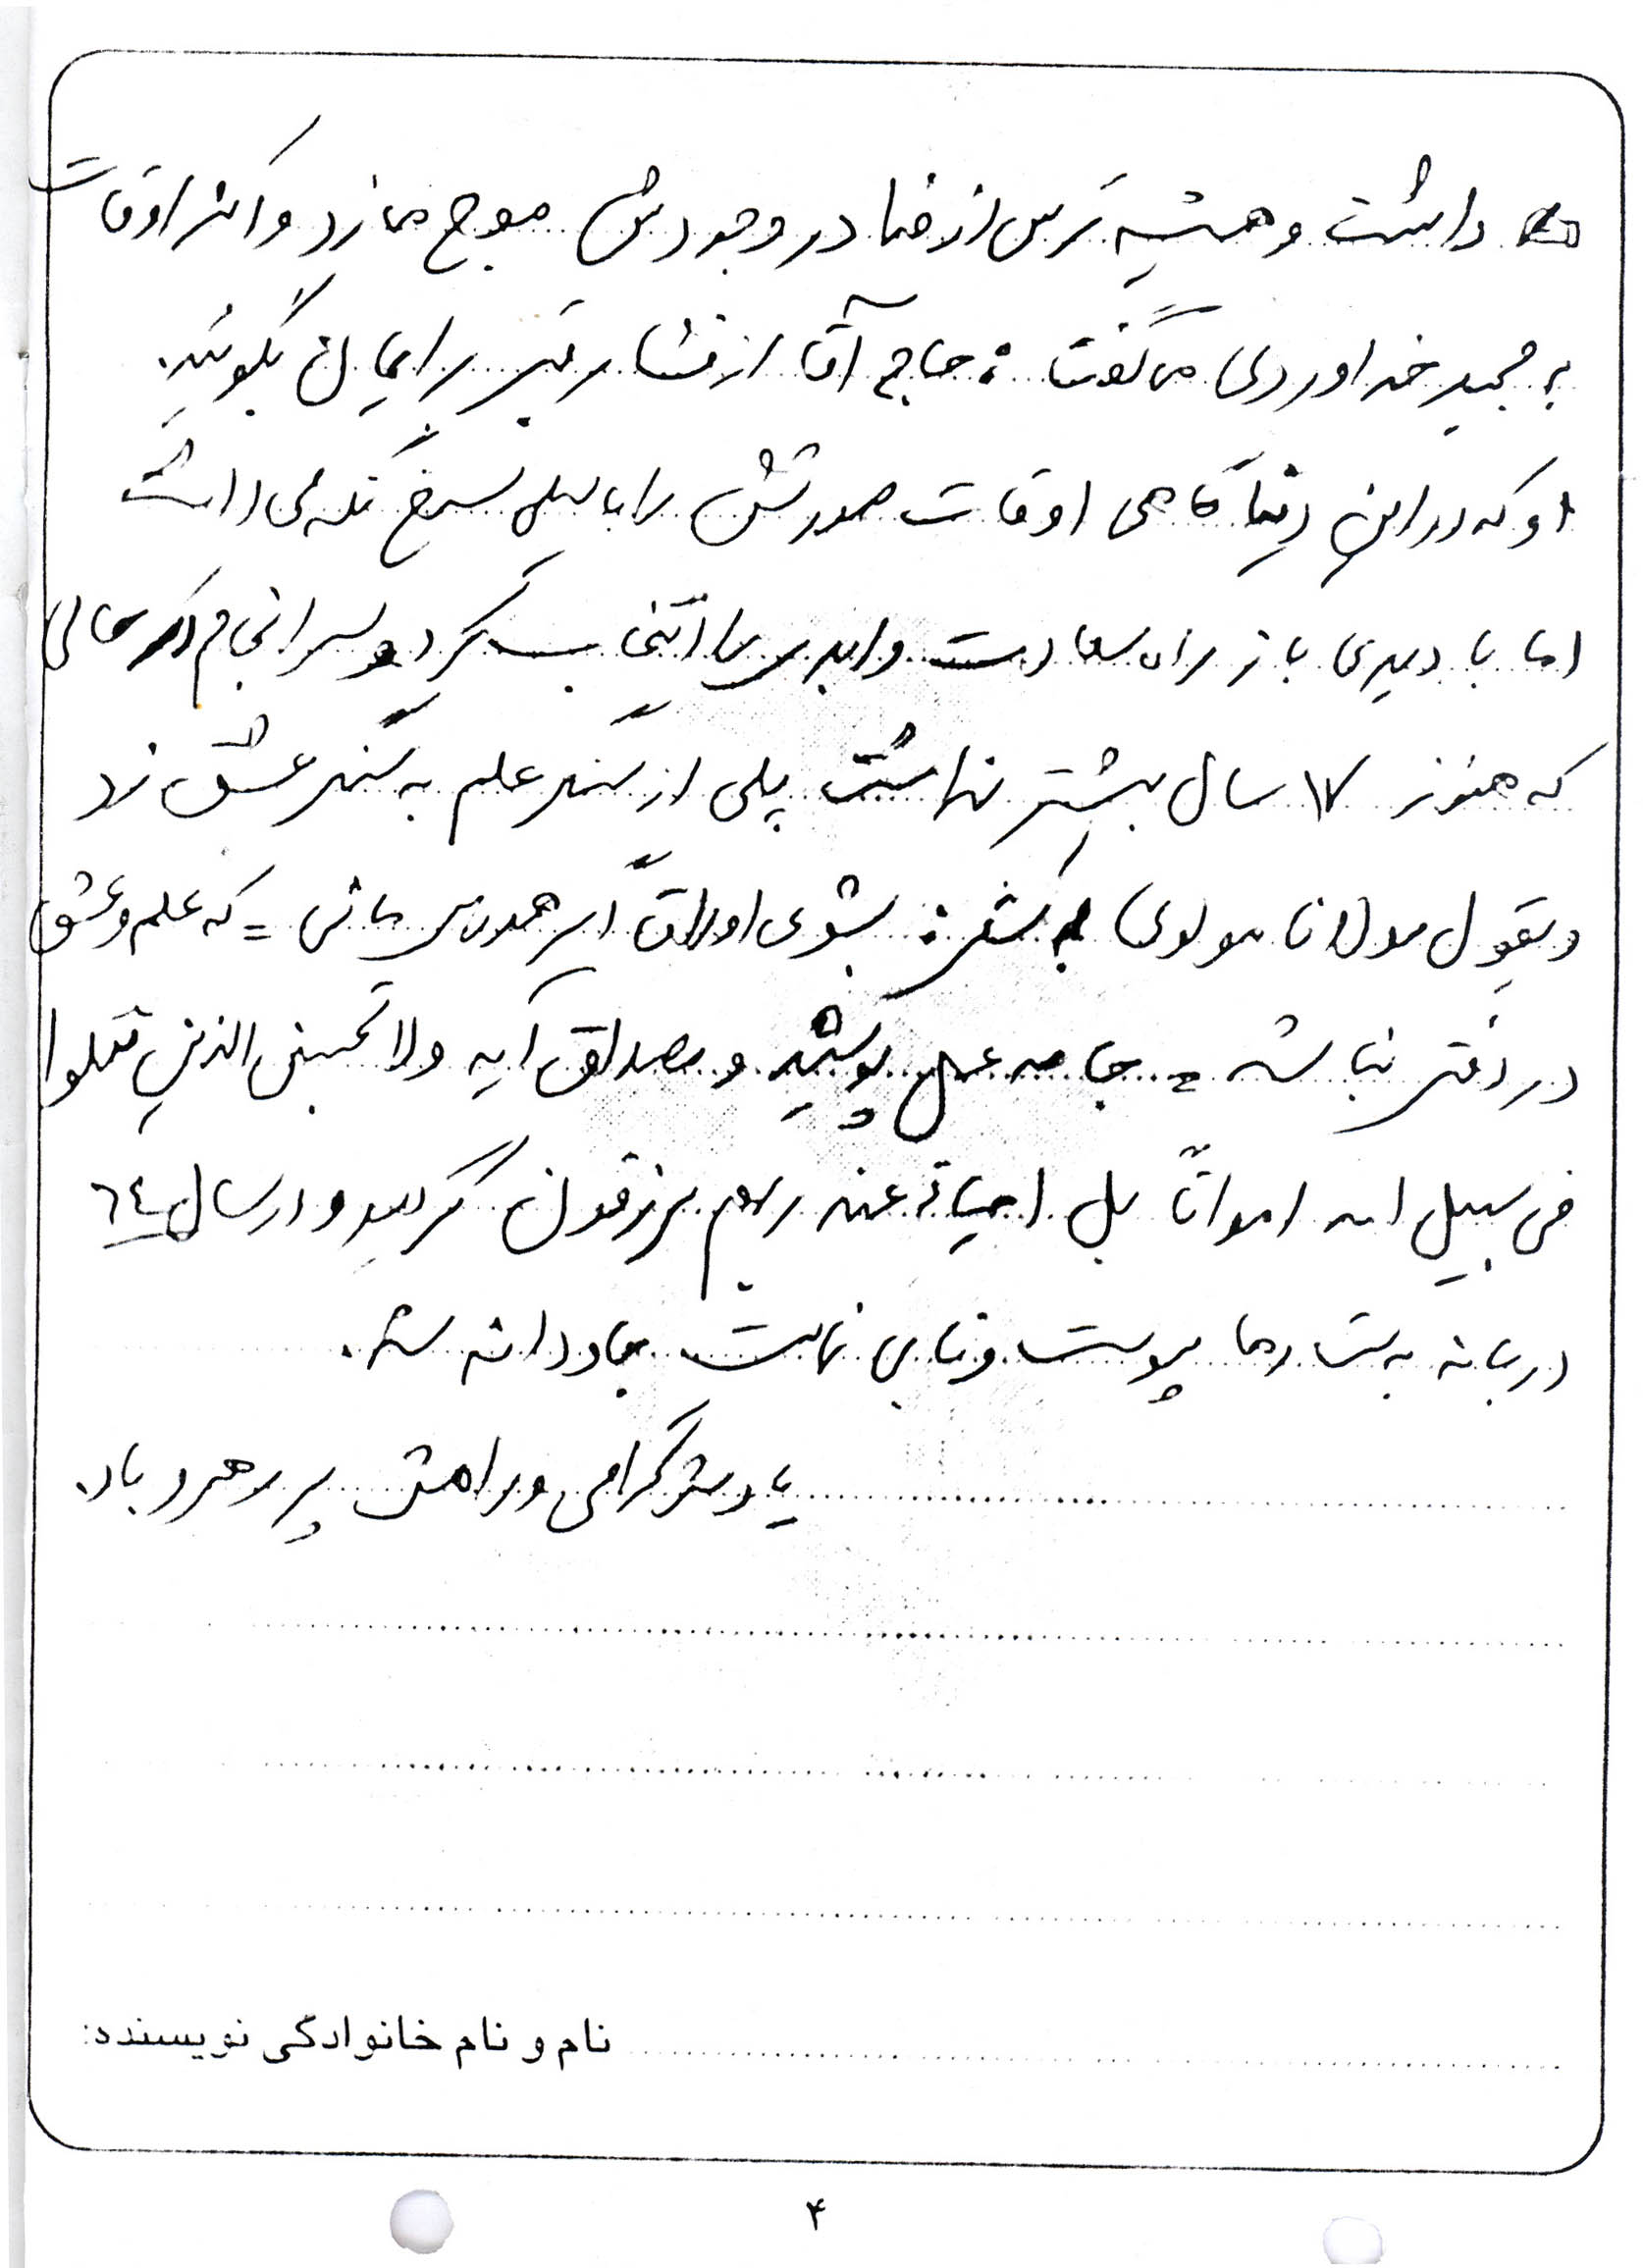 داشت و همیشه ترس از خدا در وجودش موج می زد و اکثر اوقات
به مجید خداوردی می گفت : حاج آقا از فشار قبر برایمان بگوئید.
او که در این دنیا گاهی اوقات صورتش را با سیلی سرخ نگه می داشت
اما با دیدی باز راه سعادت و ابدی را انتخاب کرد و سرانجام در حالی
که هنوز ۱۷ سال بیشتر نداشت پلی از سنگر علم به سنگر عشق زد
و بقول مولانا مولوی که : بشوی اوراق اگر همدرس مائی = که علم و عشق
در دفتر نباشد = جامه عمل پوشید و مصداق آیه ولا تحسبن الذین قتلوا
فی سبیل الله امواتاً بل احیاء عند ربهم یرزقون گردید و در سال ٦٤
در بانه به ستاره ها پیوست و تا بی نهایت جاودانه شد.
یادش گرامی و راهش پر رهرو باد.
نام و نام خانوادگی نویسنده:
۴